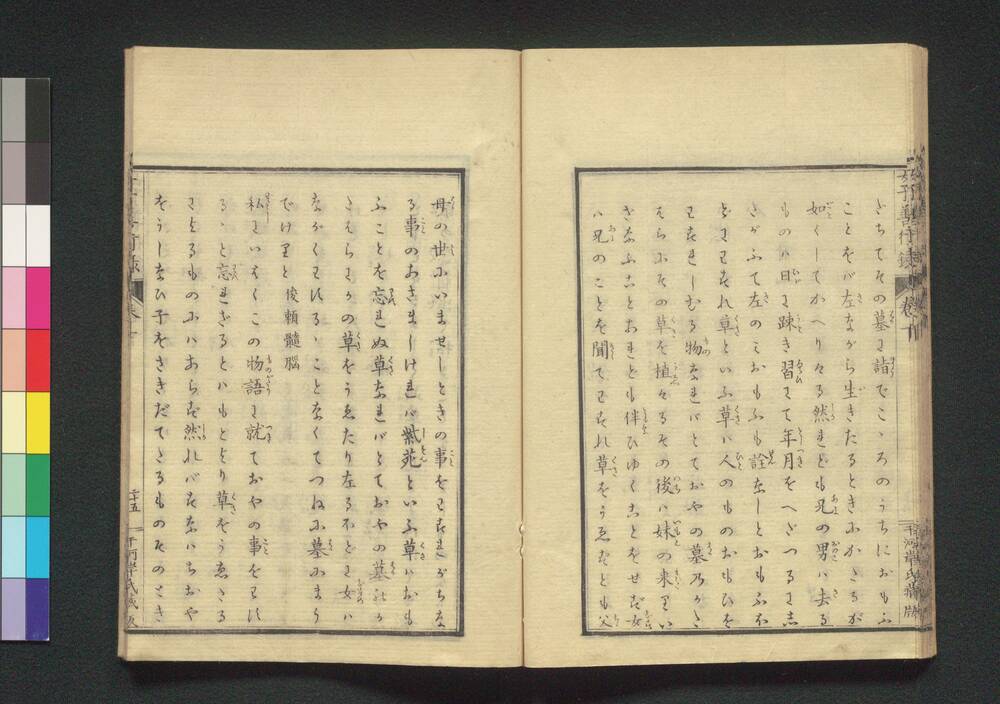 さちてその墓に詣でこゝろのうちにおもふ
ことをば左ながら生きたるときにかたるが
如くしてかへりける然れども兄の男は去る
ものは日に疎き習にて年月をへだつるに志
たがふて左のみおもふも詮なしとおもふほ
どにわすれ草といふ草は人のものおもひを
わすれしむる物なればとておやの墓のかた
はらにその草を植けるその後は妹の来りい
ざなふことあれども伴ひゆくことをせず女
は兄のことを聞てわすれ草をうゑずとも父
母の世にいませしときの事をわすれがちな
る事のあさましければ紫苑といふ草はおも
ふことを忘れぬ草なればとておやの墓のか
たはらにかの草をうゑたり左るほどに女は
ながくわするゝことなくてつねに墓にまう
でけりと 俊頼髄脳
私にいはくこの物語に就ておやの事をわす
るゝと忘れざるとはもとより草をうゑたる
によるものにはあらず然ればすなはちおや
をうしなひ子をさきだてたるものそのとき
卷十
二十五
千河岸氏蔵版